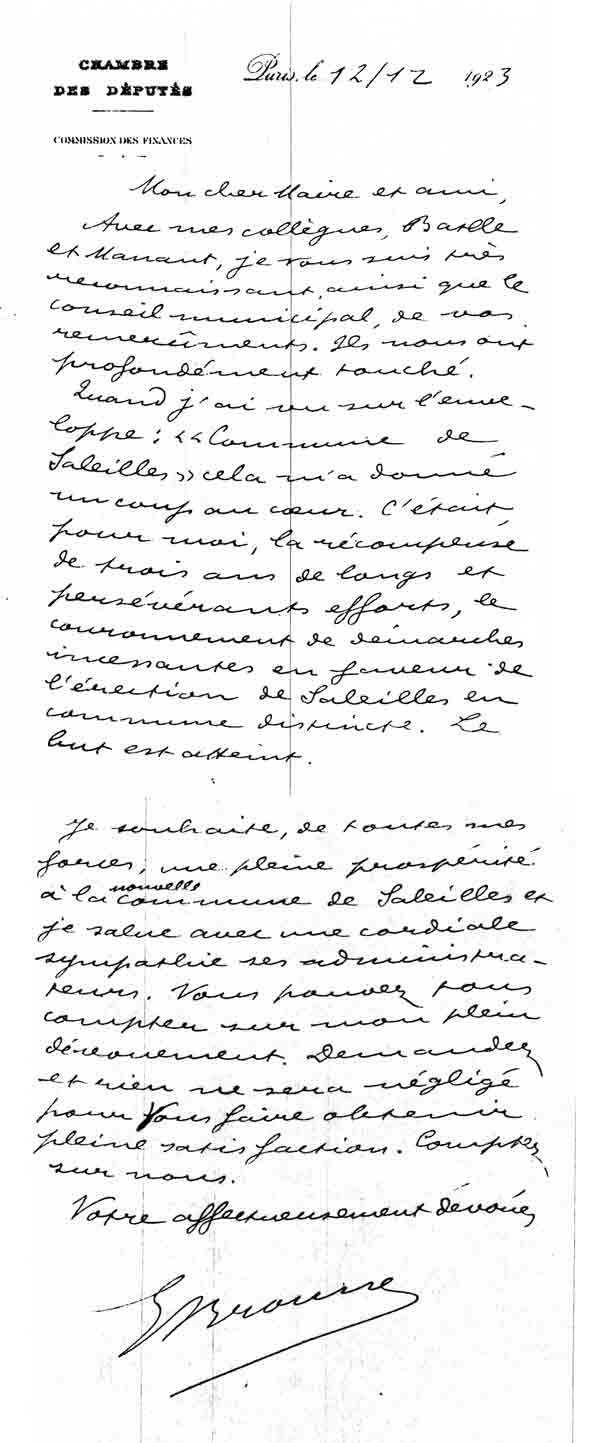 CHAMBRE
DES DÉPUTÉS
COMMISSION DES FINANCES
Paris, le 12/12 1923
Mon cher Maire et ami,
Avec mes collègues, Batlle
et Manaut, je vous suis très
reconnaissant, ainsi que le
conseil municipal, de vos
remercîments. Ils nous ont
profondément touché.
Quand j'ai vu sur l'enve-
loppe : «Commune de
Saleilles» cela m'a donné
un coup au cœur. C'était
pour moi, la récompense
de trois ans de longs et
persévérants efforts, le
couronnement de démarches
incessantes en faveur de
l'érection de Saleilles en
commune distincte. Le
but est atteint.
Je souhaite, de toutes mes
forces, une pleine prospérité
à la nouvelle commune de Saleilles et
je salue avec une cordiale
sympathie ses administra-
teurs. Vous pouvez tous
compter sur mon plein
dévouement. Demandez
et rien ne sera négligé
pour Vous faire obtenir
pleine satisfaction. Comptez
sur nous.
Votre affectueusement dévoué,
E Brousse